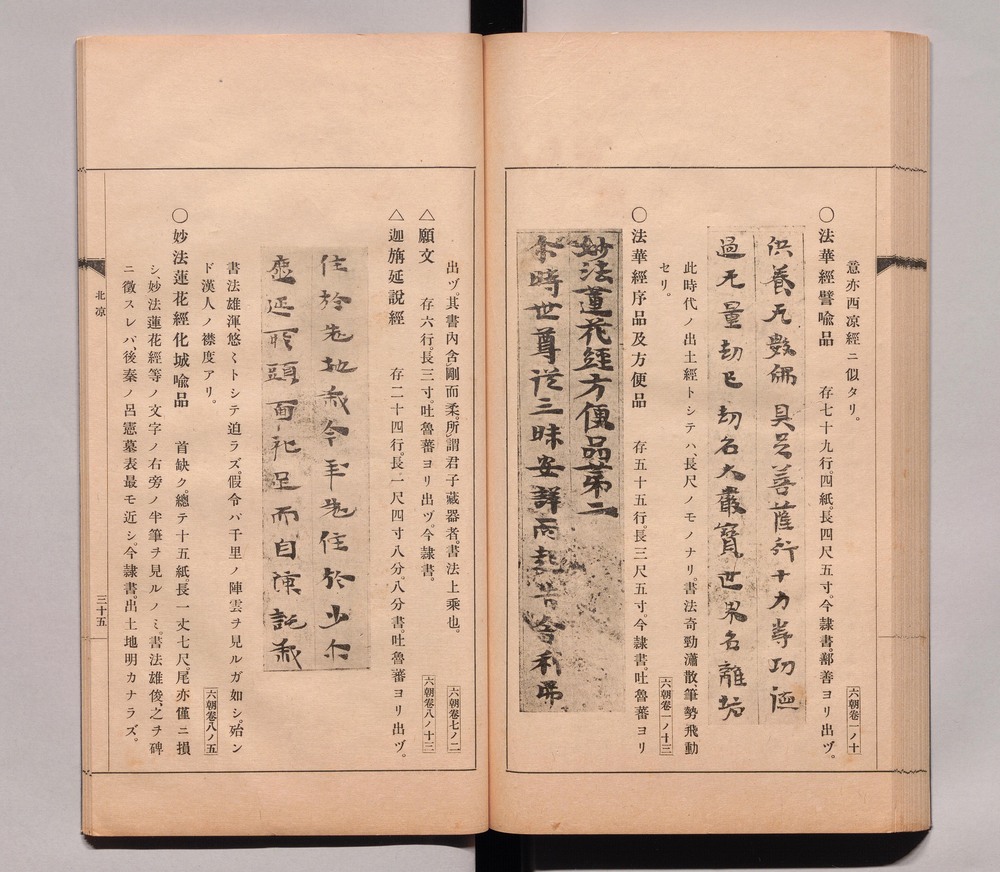 意亦西涼經ニ似タリ。
六朝卷一ノ十
〇法華經譬喩品 存七十九行。四紙。長四尺五寸。今隷書。鄯善ヨリ出ヅ。
供養无數佛具足菩薩行十力等功德
過无量劫已劫名大嚴寶世界名離垢
此時代ノ出土經トシテハ、長尺ノモノナリ。書法奇勁瀟散、筆勢飛動
セリ。
六朝卷一ノ十三
〇法華經序品及方便品 存五十五行。長三尺五寸今隷書。吐魯蕃ヨリ
妙法蓮花經方便品第二
尒時世尊從三昧安詳而起告舍利弗
出ヅ。其書內含剛而柔。所謂君子藏器者。書法上乘也。
六朝卷七ノ二
△願文 存六行。長三寸。吐魯蕃ヨリ出ヅ。今隷書。
六朝卷八ノ十三
△迦旃延說經 存二十四行。長一尺四寸八分。八分書。吐魯蕃ヨリ出ヅ。
住於先地
今年
住於少
延
頭面
足而自陳說
書法雄渾、悠〻トシテ迫ラズ。假令バ千里ノ陣雲ヲ見ルガ如シ。殆ン
ド漢人ノ襟度アリ。
六朝卷八ノ五
〇妙法蓮花經化城喩品 首缺ク。總テ十五紙長一丈七尺。尾亦僅ニ損
シ、妙法蓮花經等ノ文字ノ右旁ノ半筆ヲ見ルノミ。書法雄俊、之ヲ碑
ニ徵スレバ、後秦ノ呂憲墓表最モ近シ。今隷書。出土地明カナラズ。
北涼
三十五